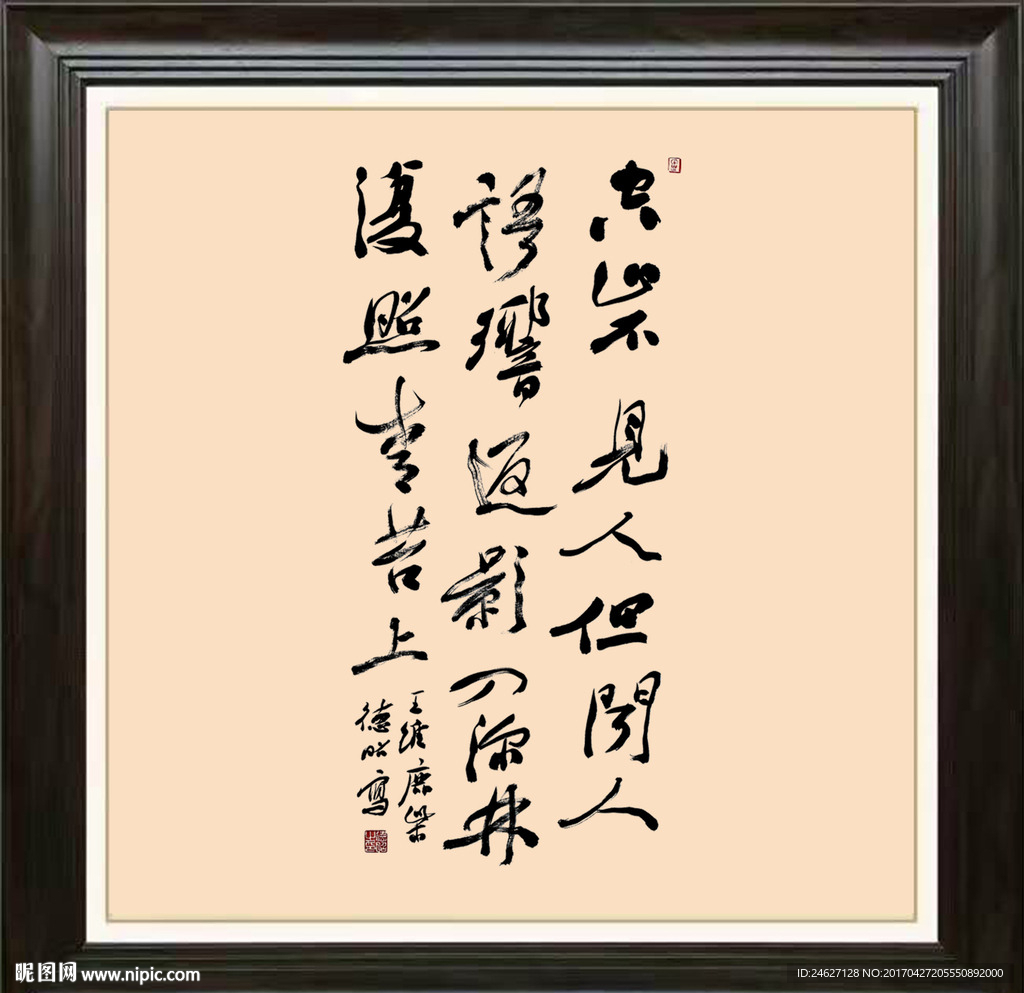 空山不見人但聞人
語響返影入深林
復照青苔上
王維鹿柴
德昭寫
昵图网 www.nipic.com
ID:24627128 NO:20170427205550892000